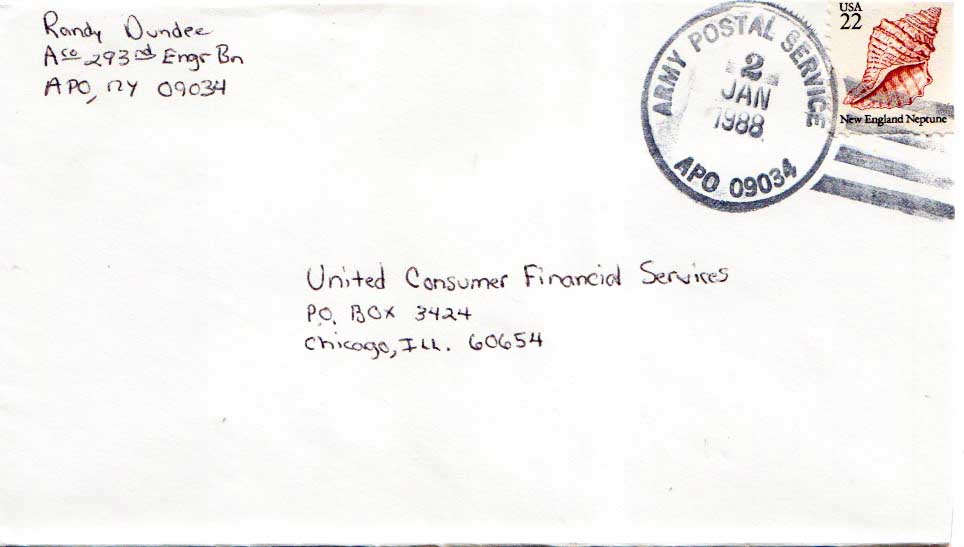 Randy Dundee
A Co 293rd Engr Bn
APO, NY 09034
USA
22
New England Neptune
ARMY POSTAL SERVICE
2
JAN
1988
APO 09034
United Consumer Financial Services
P.O. BOX 3424
Chicago, Ill. 60654